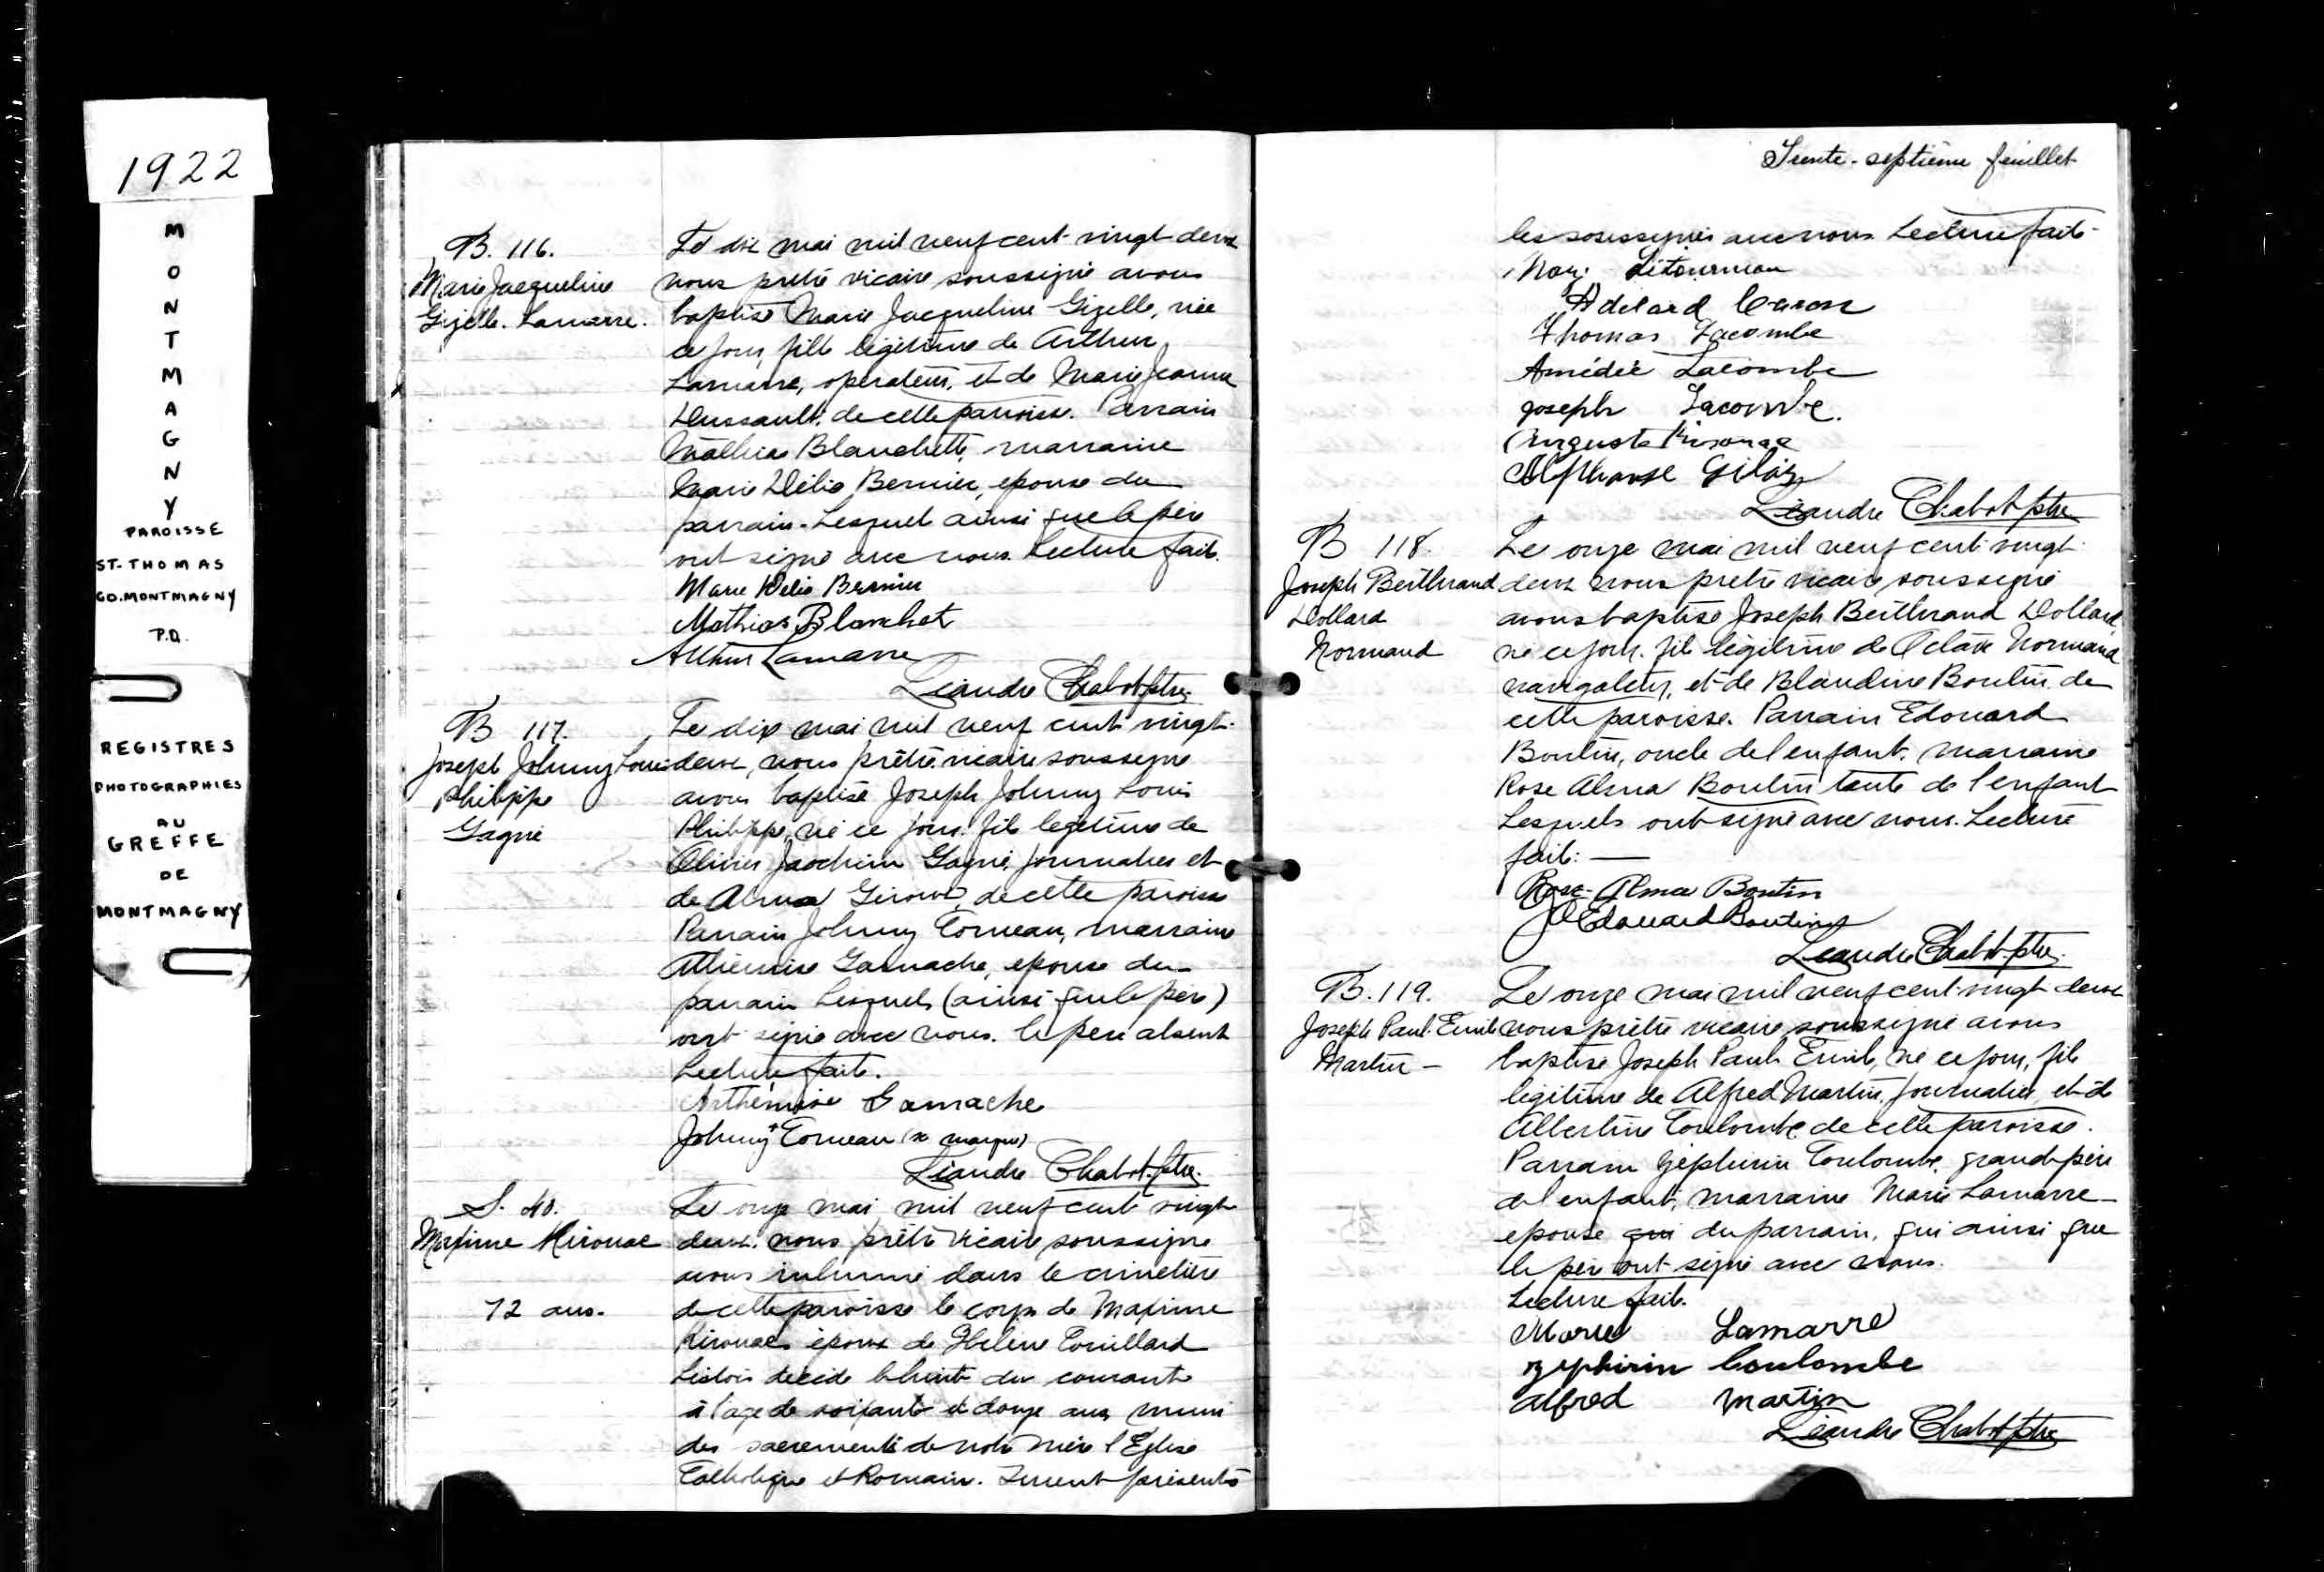 1922
MONTMAGNY
PAROISSE
ST-THOMAS
CO. MONTMAGNY
P.Q.
REGISTRES
PHOTOGRAPHIES
AU
GREFFE
DE
MONTMAGNY
B. 116.
Marie Jacqueline
Gizelle Lamarre.
Le dix mai mil neuf cent vingt deux
nous prêtre vicaire soussigné avons
baptisé Marie Jacqueline Gizelle, née
ce jour, fille légitime de Arthur
Lamarre, opérateur, et de Marie Jeanne
Dussault, de cette paroisse. Parrain
Mathias Blanchette, marraine
Marie Délia Bernier, épouse du
parrain. Lesquels ainsi que le père
ont signé avec nous. Lecture faite.
Marie Delia Bernier
Mathias Blanchet
Arthur Lamarre
Léandre Chabot ptre
B 117.
Joseph Johnny Louis
Philippe
Gagné
Le dix mai mil neuf cent vingt-
deux, nous prêtre vicaire soussigné
avons baptisé Joseph Johnny Louis
Philippe, né ce jour, fils légitime de
Olivier Joachim Gagné, journalier et
de Alma Giroux, de cette paroisse
Parrain Johnny Corneau, marraine
Gamache, épouse du
parrain Lesquels (ainsi que le père)
ont signé avec nous. le père absent
Lecture faite.
Arthémise Gamache
Johnny + Corneau (sa marque)
Léandre Chabot ptre.
S. 40.
Maxime Kirouac
72 ans.
Le onze mai mil neuf cent vingt
deux, nous prêtre vicaire soussigné
avons inhumé dans le cimetière
de cette paroisse le corps de Maxime
Kirouac époux de Hélène Couillard
décédé le huit du courant
à l'age de soixante et douze ans, muni
des sacrements de notre mère l'Eglise
Catholique et Romain. Furent présents
Trente-septième feuillet
les soussignés avec nous. Lecture faite-
Naz. Létourneau
Adelard Caron
Thomas Lacombe
Amédée Lacombe
Joseph Lacombe.
Auguste Kirouac
Alphonse
Léandre Chabot ptre
B 118.
Joseph Berthrand
Dollard
Normand
Le onze mai mil neuf cent vingt-
deux nous prêtre vicaire soussigné
avons baptisé Joseph Berthrand Dollard
né ce jour, fils légitime de Octave Normand
navigateur, et de Blandine Boutin, de
cette paroisse. Parrain Edouard
Boutin, oncle de l'enfant, marraine
Rose Alma Boutin tante de l'enfant
Lesquels ont signé avec nous. Lecture
faite: —
Rose-Alma Boutin
J Edouard Boutin
Léandre Chabot ptre.
B. 119.
Joseph Paul-Emile
Martin —
Le onze mai mil neuf cent vingt deux
nous prêtre vicaire soussigné avons
baptisé Joseph Paul Emile, né ce jour, fils
légitime de Alfred Martin, journalier, et de
Albertine Coulombe de cette paroisse.
Parrain Zéphirin Coulombe, grand-père
de l'enfant, marraine Marie Lamarre
épouse qui du parrain, qui ainsi que
le père ont signé avec nous.
Lecture faite.
Marie Lamarre
Zephirin Coulombe
Alfred Martin
Léandre Chabot ptre